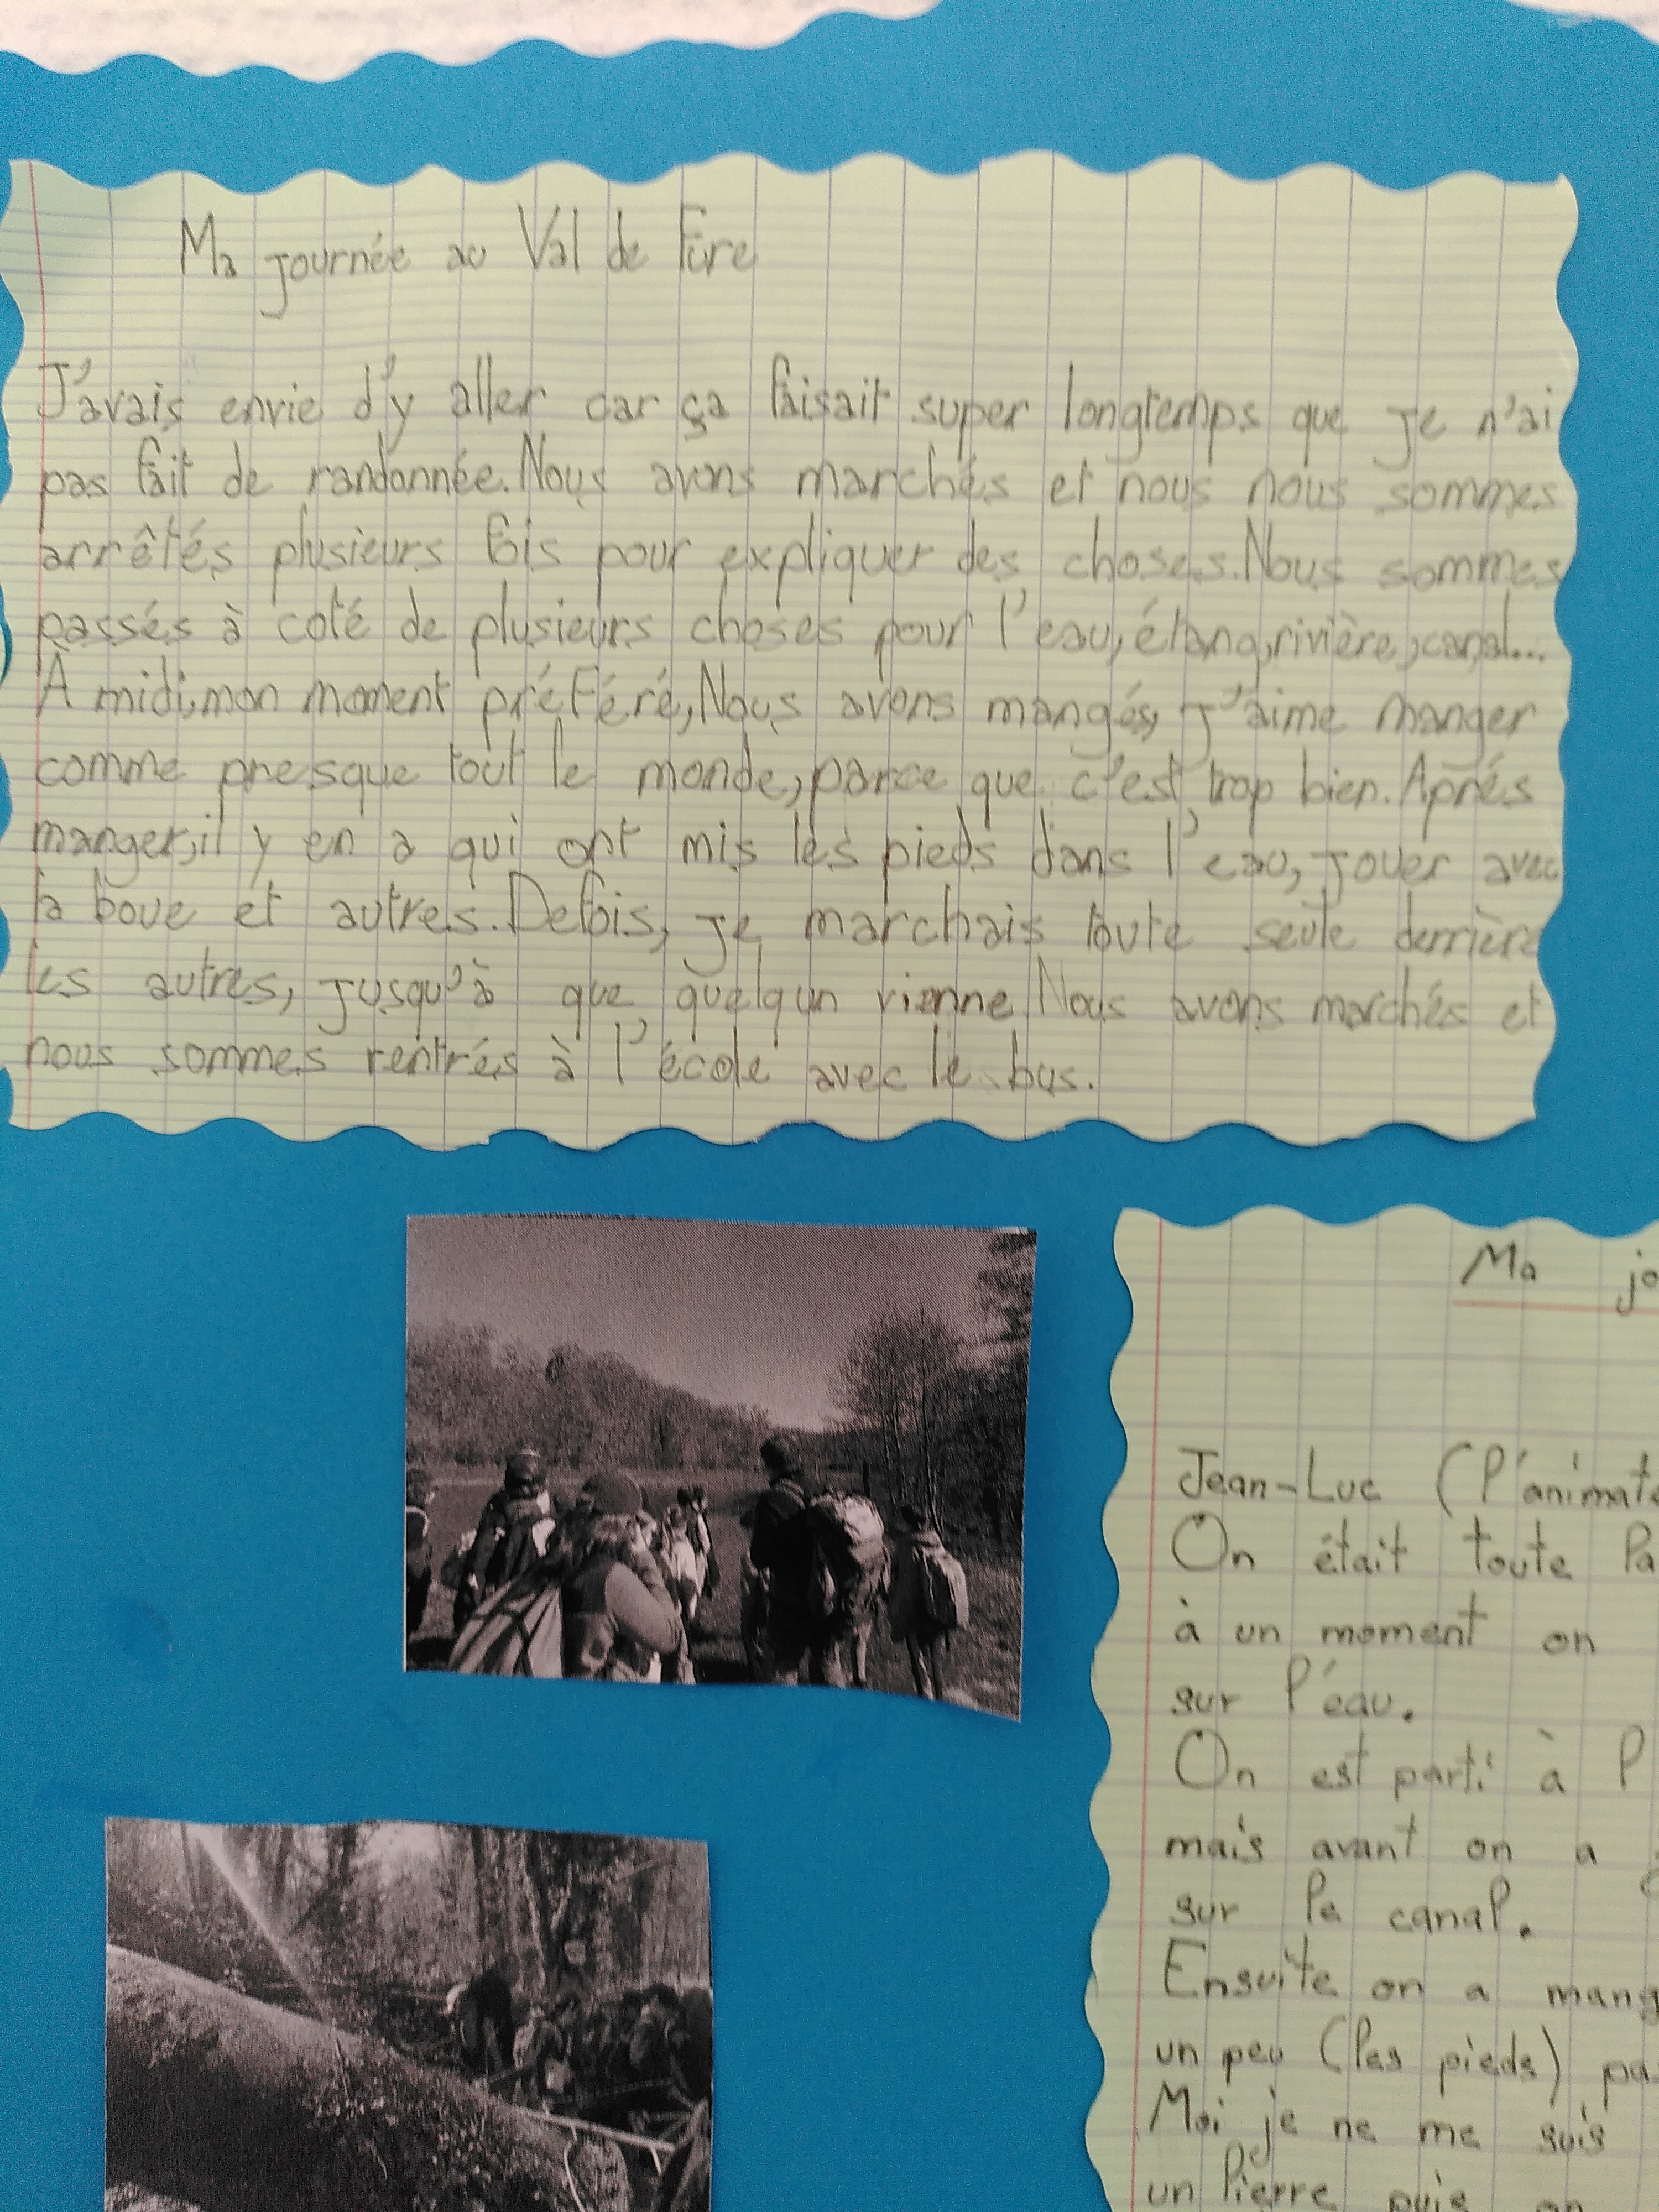 Ma journée au Val de Fure
J'avais envie d'y aller car ça faisait super longtemps que je n'ai
pas fait de randonnée. Nous avons marchés et nous nous sommes
arrêtés plusieurs fois pour expliquer des choses. Nous sommes
passés à coté de plusieurs choses pour l'eau, étang, rivière, canal...
À midi, mon moment préféré, Nous avons mangés, j'aime manger
comme presque tout le monde, parce que c'est trop bien. Aprés
manger, il y en a qui ont mis les pieds dans l'eau, jouer avec
la boue et autres. Defois, je marchais toute seule derrière
les autres, jusqu'à que quelqun vienne. Nous avons marchés et
nous sommes rentrés à l'école avec le bus.
Ma jo
Jean-Luc (l'animate
On était toute la
à un moment on
sur l'éau.
On est parti à l
mais avant on a
sur le canal.
Ensuite on a mang
un peu (les pieds) pa
Moi je ne me suis
un lierre puis on